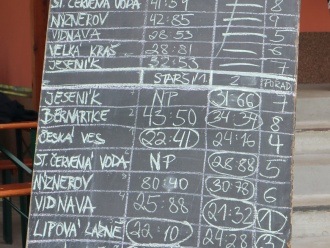 ST. ČERVENÁ VODA 41:59 8
NÝZNEROV 42:85 9
VIDNAVA 28:53
VELKÁ KRAŠ 28:81 6
JESENÍK 32:53
STARŠÍ 1 2 POŘADÍ
JESENÍK NP 31:66 7
BERNARTICE 43:50 34:34 8
ČESKÁ VES 22:41 24:16 4
ST. ČERVENÁ VODA NP 28:88 5
NÝZNEROV 80:40 30:78 6
VIDNAVA 25:88 21:32 1
LIPOVÁ LÁZNĚ 22:10 3